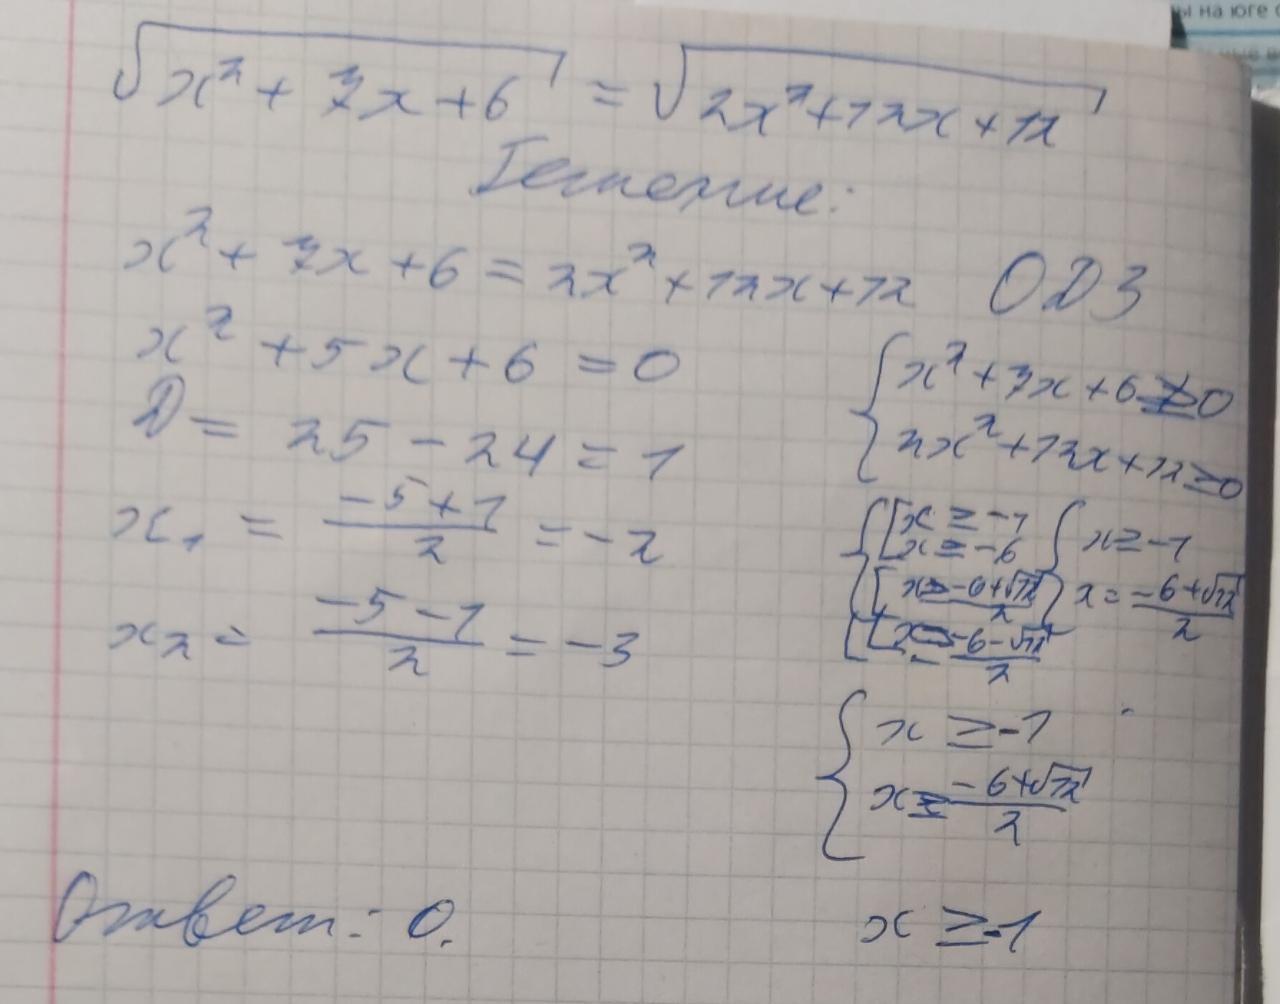 ы на юге
√(x² + 7x + 6) = √(2x² + 12x + 12)
Решение:
x² + 7x + 6 = 2x² + 12x + 12
x² + 5x + 6 = 0
D = 25 - 24 = 1
x₁ = (-5+1)/2 = -2
x₂ = (-5-1)/2 = -3
Ответ: 0.
ОДЗ
{ x² + 7x + 6 ≥ 0
2x² + 12x + 12 ≥ 0
{ [ x ≥ -1
x ≥ -6
[ x ≥ (-6+√12)/2
x ≥ (-6-√12)/2
{ x ≥ -1
x = (-6+√12)/2
{ x ≥ -1
x ≥ (-6+√12)/2
x ≥ -1